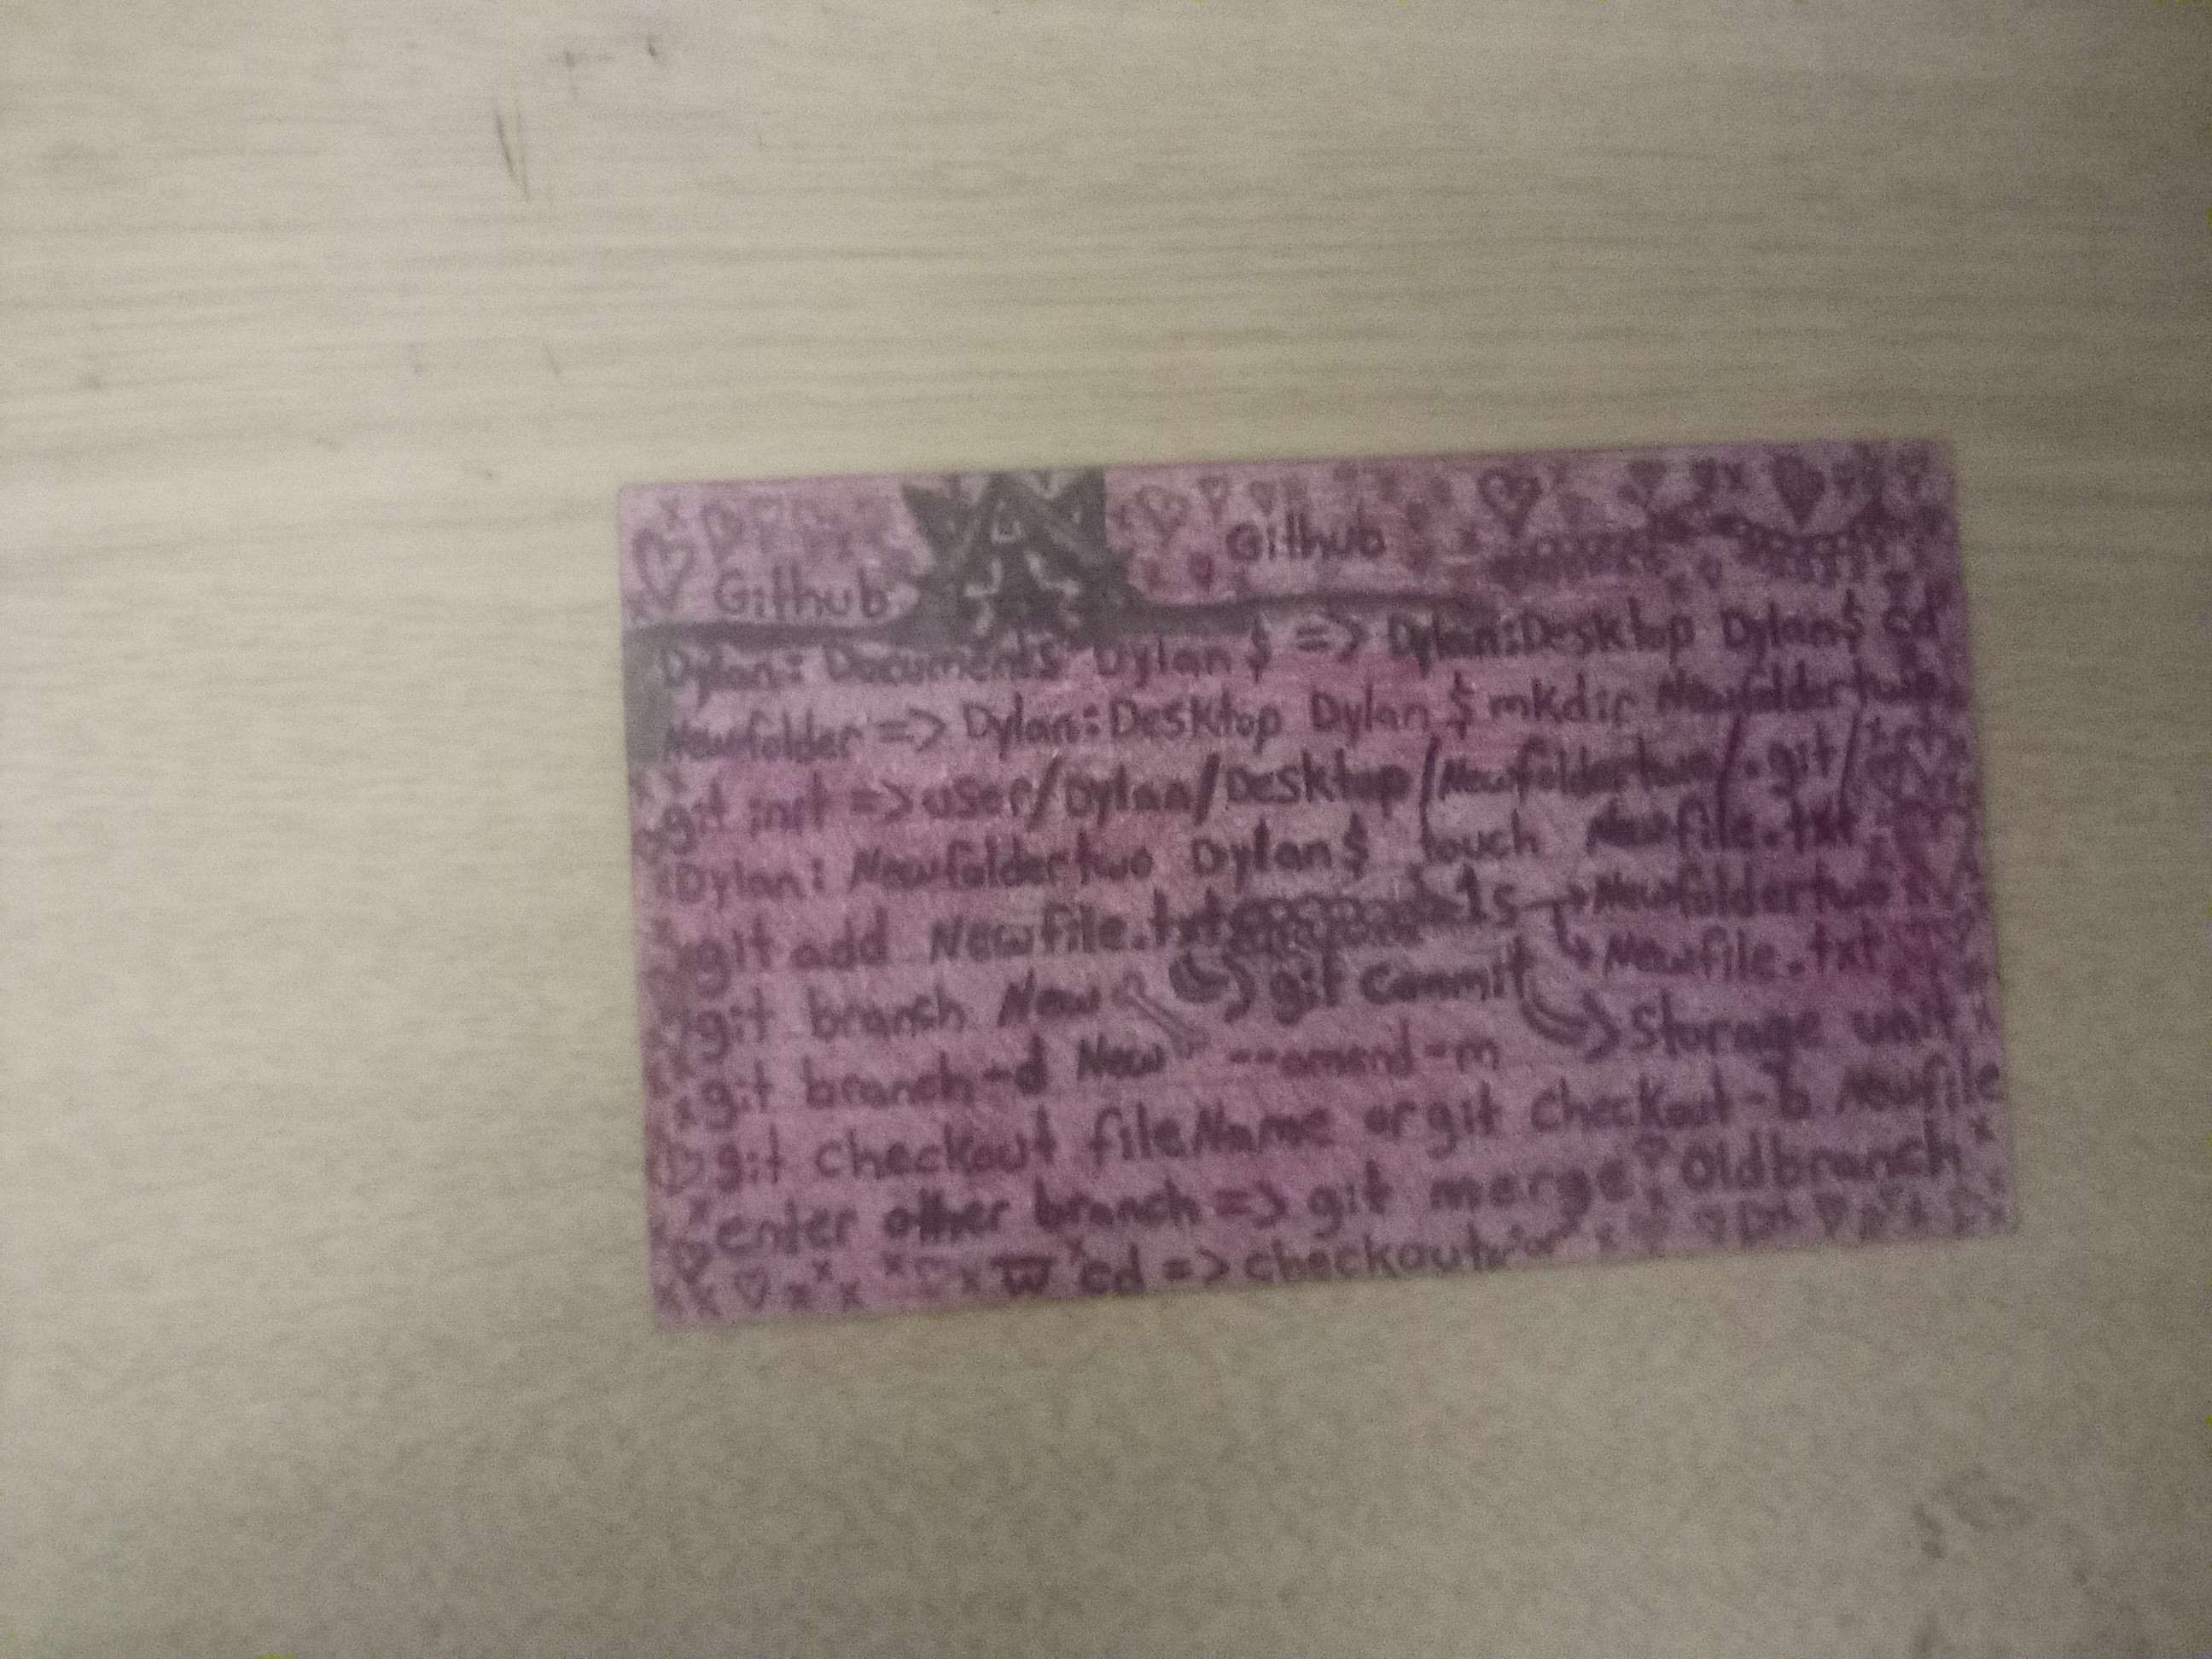 Github
Github
Dylan: Documents Dylan $ => Dylan:Desktop Dylan$ cd
Newfolder => Dylan:Desktop Dylan $ mkdir Newfoldertwo
git init => user/Dylan/Desktop/Newfoldertwo/.git/
Dylan: Newfoldertwo Dylan$ touch Newfile.txt
git add Newfile.txt ls → Newfoldertwo
↳ Newfile.txt
git branch New git Commit
Storage unit
git branch -d New --amend -m
git checkout fileName or git checkout -b Newfile
enter other branch => git merge Oldbranch
cd => checkout